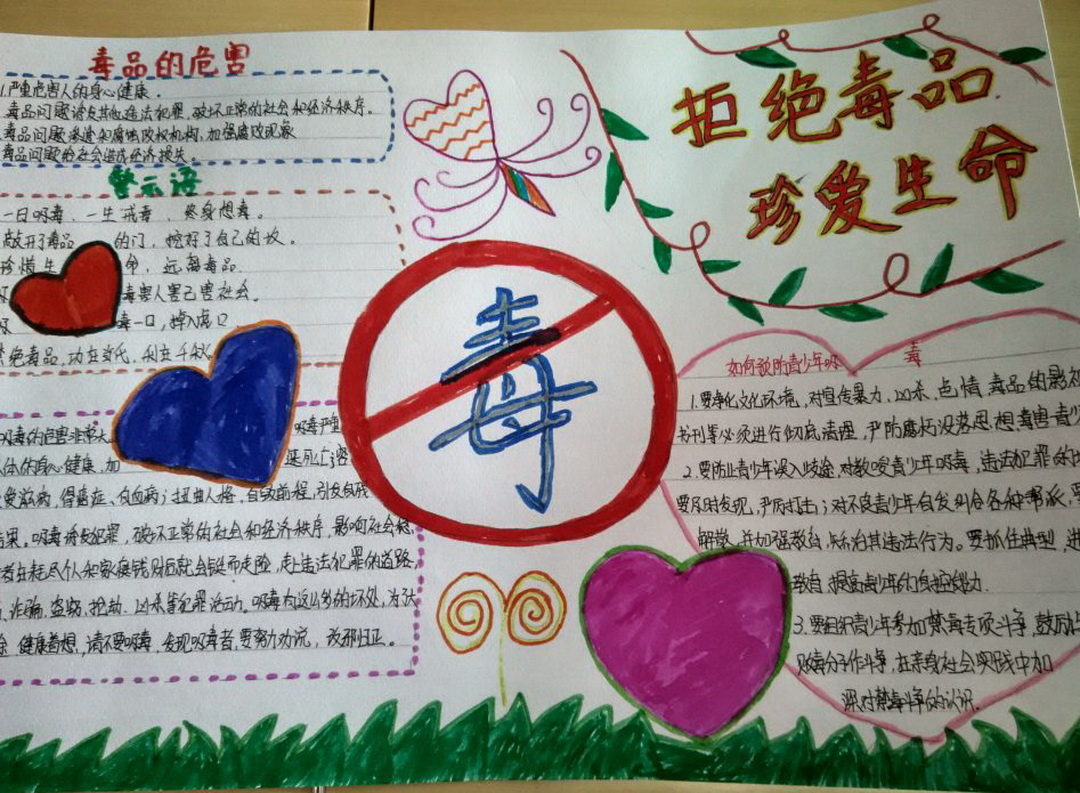 拒绝毒品
珍爱生命
毒品的危害
1.严重危害人的身心健康.
毒品问题诱发其他违法犯罪,破坏正常的社会和经济秩序.
毒品问题渗透和腐蚀政权机构,加强腐败现象
毒品问题给社会造成经济损失.
警示语
一日吸毒,一生戒毒,终身想毒。
敲开了毒品的门,挖好了自己的坟。
珍惜生命,远离毒品.
毒害人害己害社会。
毒一口,掉入虎口.
绝毒品,功在当代,利在千秋
吸毒的危害非常大 吸毒严重
人体的身心健康,加
爱滋病,得癌症、白血病;扭曲人格,自毁前程,引发自残
后果。吸毒诱发犯罪,破坏正常的社会和经济秩序,影响社会稳
者在耗尽个人和家庭钱财后就会铤而走险,走上违法犯罪的道路,
、诈骗,盗窃,抢劫、凶杀等犯罪活动。吸毒有这么多的坏处,为了
健康着想,请不要吸毒,发现吸毒者,要努力劝说,改邪归正。
毒
如何预防青少年吸毒
1.要净化文化环境,对宣传暴力、凶杀、色情、毒品的影视
书刊等必须进行彻底清理,严防腐朽没落思想毒害青少
2.要防止青少年误入歧途,对教唆青少年吸毒,违法犯罪的
要及时发现,严厉打击;对不良青少年自发纠合各种帮派,要
解散,并加强教育,防治其违法行为。要抓住典型,进
教育,提高青少年的自控能力.
3.要组织青少年参加禁毒专项斗争,鼓励
贩毒分子作斗争,在亲身社会实践中加
深对禁毒斗争的认识.